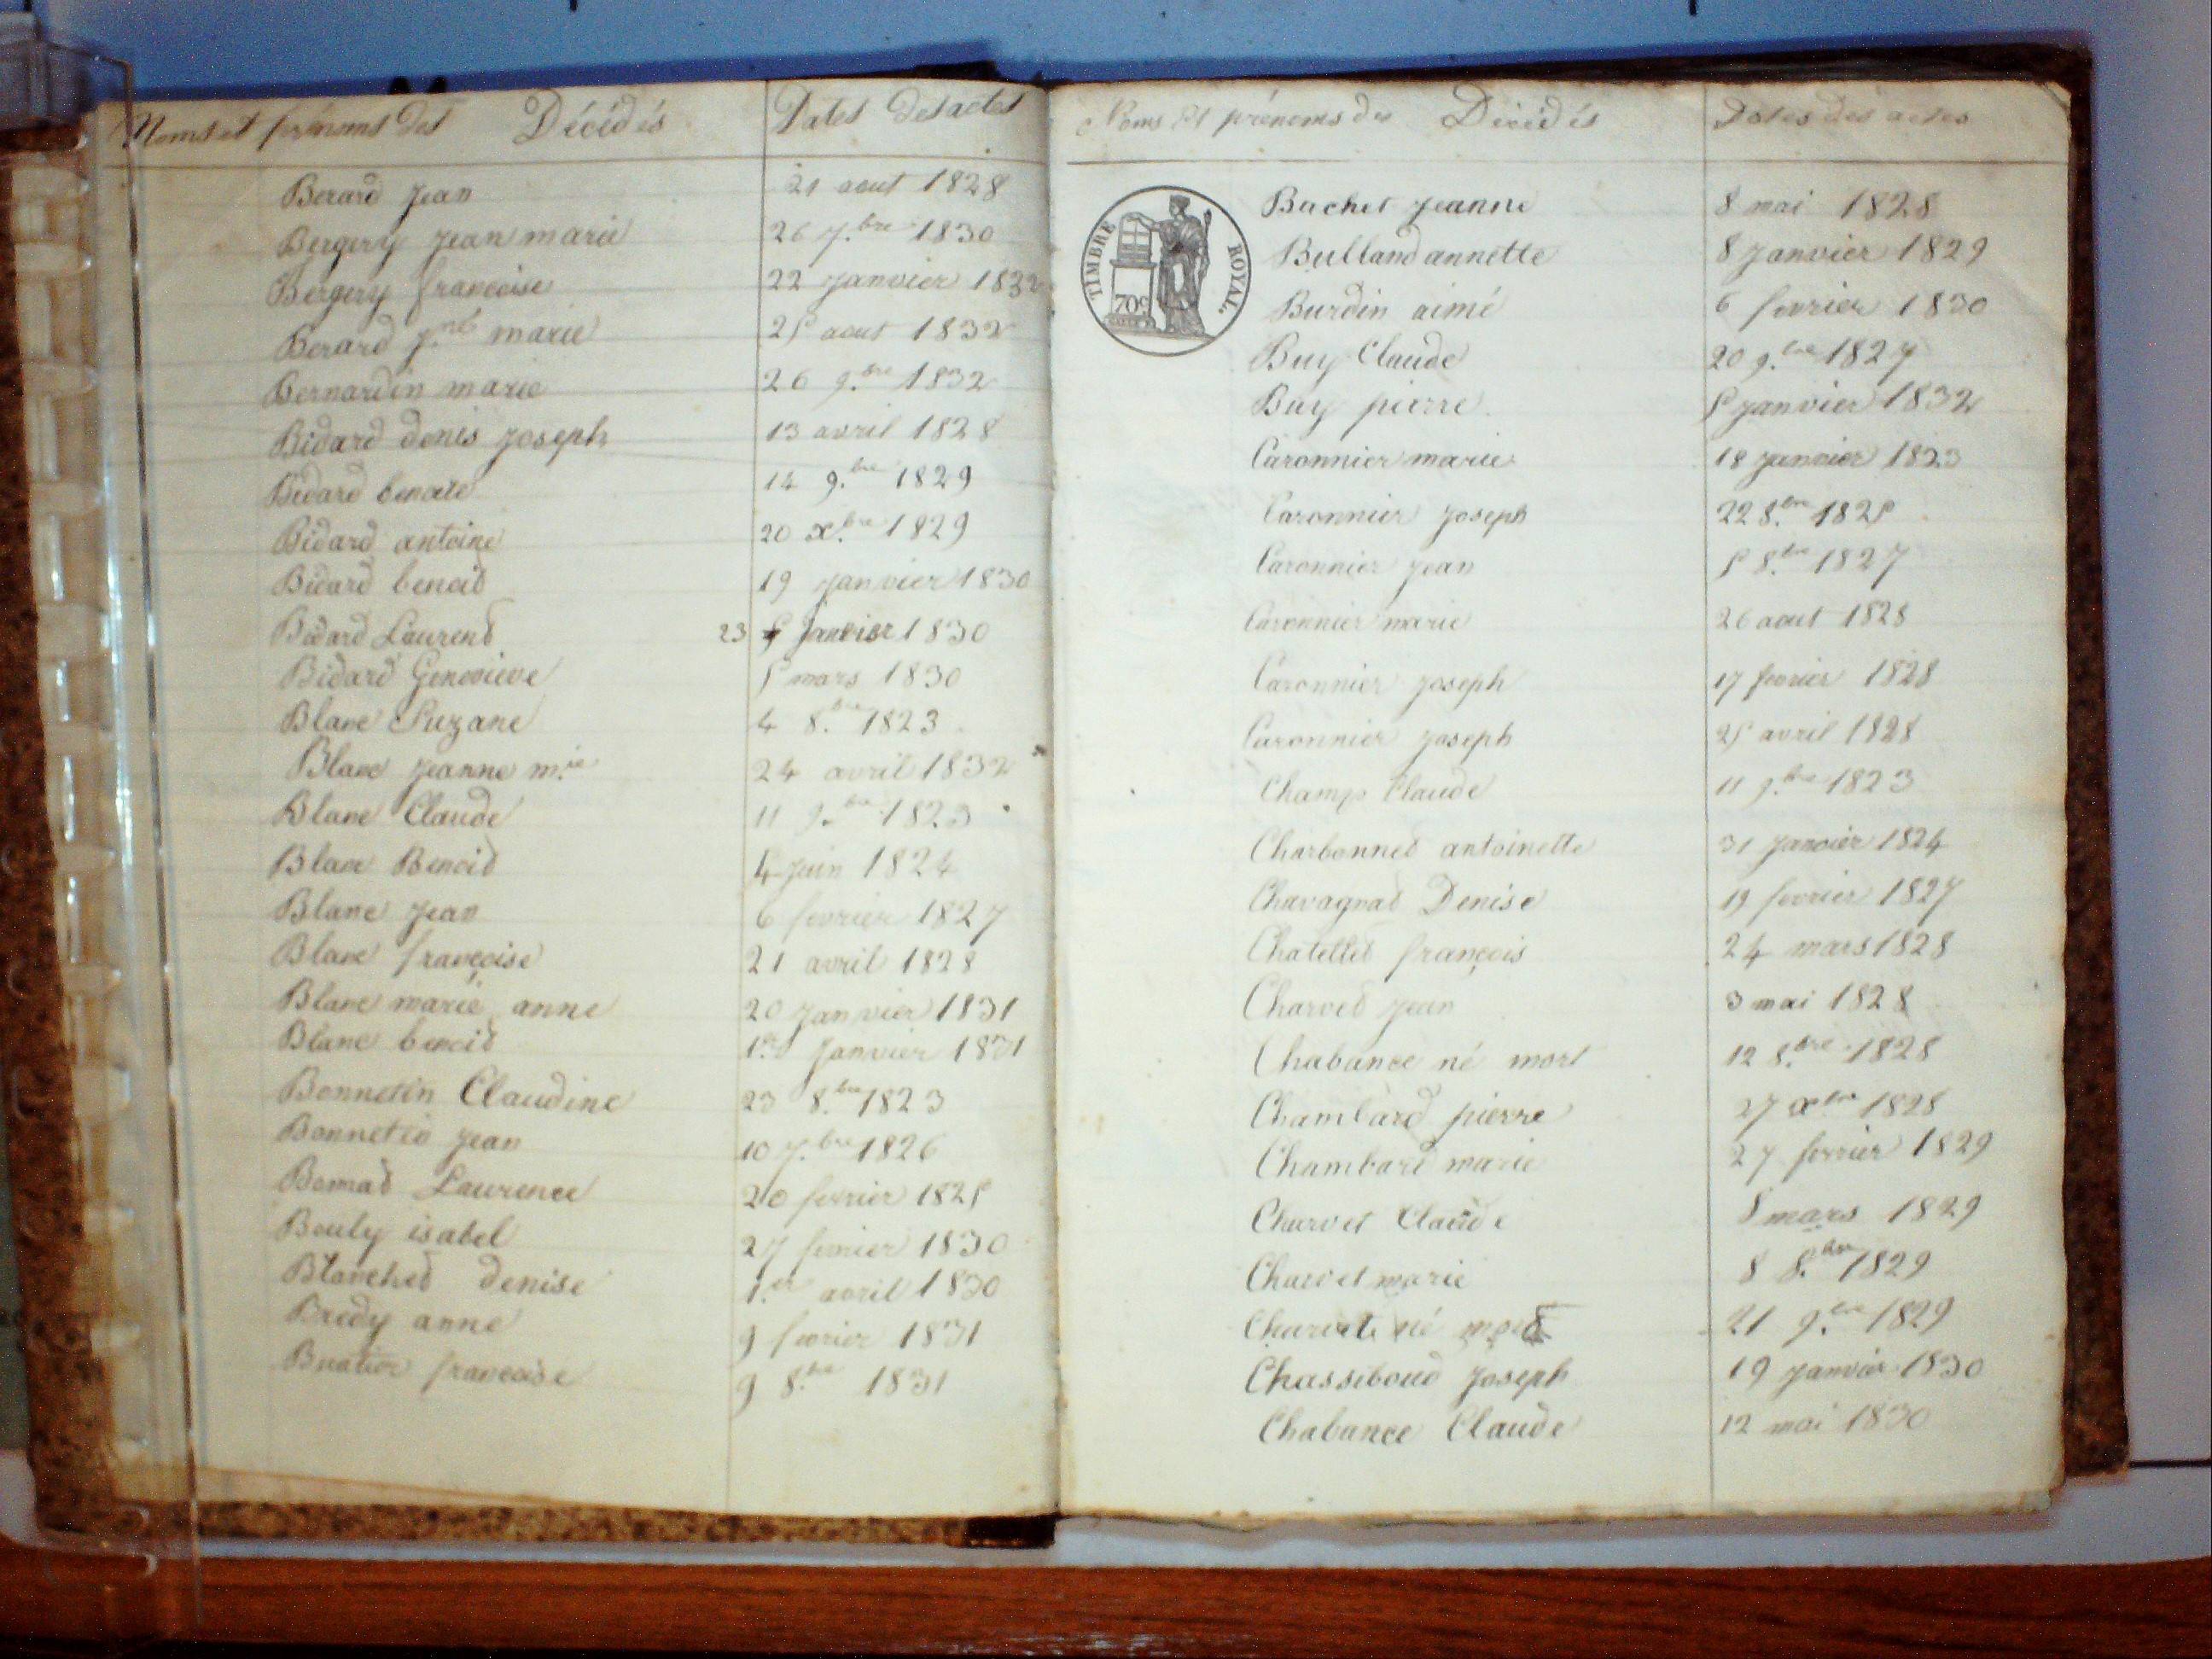 Noms et prénoms des Décédés Dates des actes
Berard Jean 21 aout 1828
Bergery Jean marie 26 7.bre 1830
Bergery francoise 22 Janvier 1832
Berard marie 25 aout 1832
Bernardin marie 26 9.bre 1832
Bidard denis Joseph 13 avril 1828
Bidard benoite 14 9.bre 1829
Bidard antoine 20 x.bre 1829
Bidard benoit 19 Janvier 1830
Bidard Laurent 23 Janvier 1830
Bidard Genevieve 5 mars 1830
Blanc Suzane 4 8.bre 1823
Blanc Jeanne m.ie 24 avril 1832
Blanc Claude 11 9.bre 1823
Blanc Benoit 4 Juin 1824
Blanc Jean 6 fevrier 1827
Blanc francoise 21 avril 1828
Blanc marie anne 20 Janvier 1831
Blanc benoit 1.er Janvier 1831
Bonnetin Claudine 23 8.bre 1823
Bonnetin Jean 10 7.bre 1826
Laurence 20 fevrier 1825
Bouly isabel 27 fevrier 1830
Blanchet denise 1.er avril 1830
Bredy anne 9 fevrier 1831
francoise 9 8.bre 1831
Noms et prénoms des Décédés Dates des actes
TIMBRE ROYAL.
70c
Buchet Jeanne 8 mai 1828
Bulland annette 8 Janvier 1829
Burdin aimé 6 fevrier 1830
Buy Claude 20 9.bre 1827
Buy pierre 5 Janvier 1832
Caronnier marie 18 Janvier 1823
Caronnier Joseph 22 8.bre 1825
Caronnier Jean 5 8.bre 1827
Caronnier marie 26 aout 1828
Caronnier Joseph 17 fevrier 1828
Caronnier Joseph 25 avril 1828
Champ Claude 11 9.bre 1823
Charbonnet antoinette 31 Janvier 1824
Chavagnat Denise 19 fevrier 1827
Chatellet françois 24 mars 1828
Charvet Jean 3 mai 1828
Chabance né mort 12 8.bre 1828
Chambard pierre 27 x.bre 1828
Chambard marie 27 fevrier 1829
Charvet Claude mars 1829
Charvet marie 8 8.bre 1829
Charvet né mort 21 9.bre 1829
Chassiboud Joseph 19 Janvier 1830
Chabance Claude 12 mai 1830